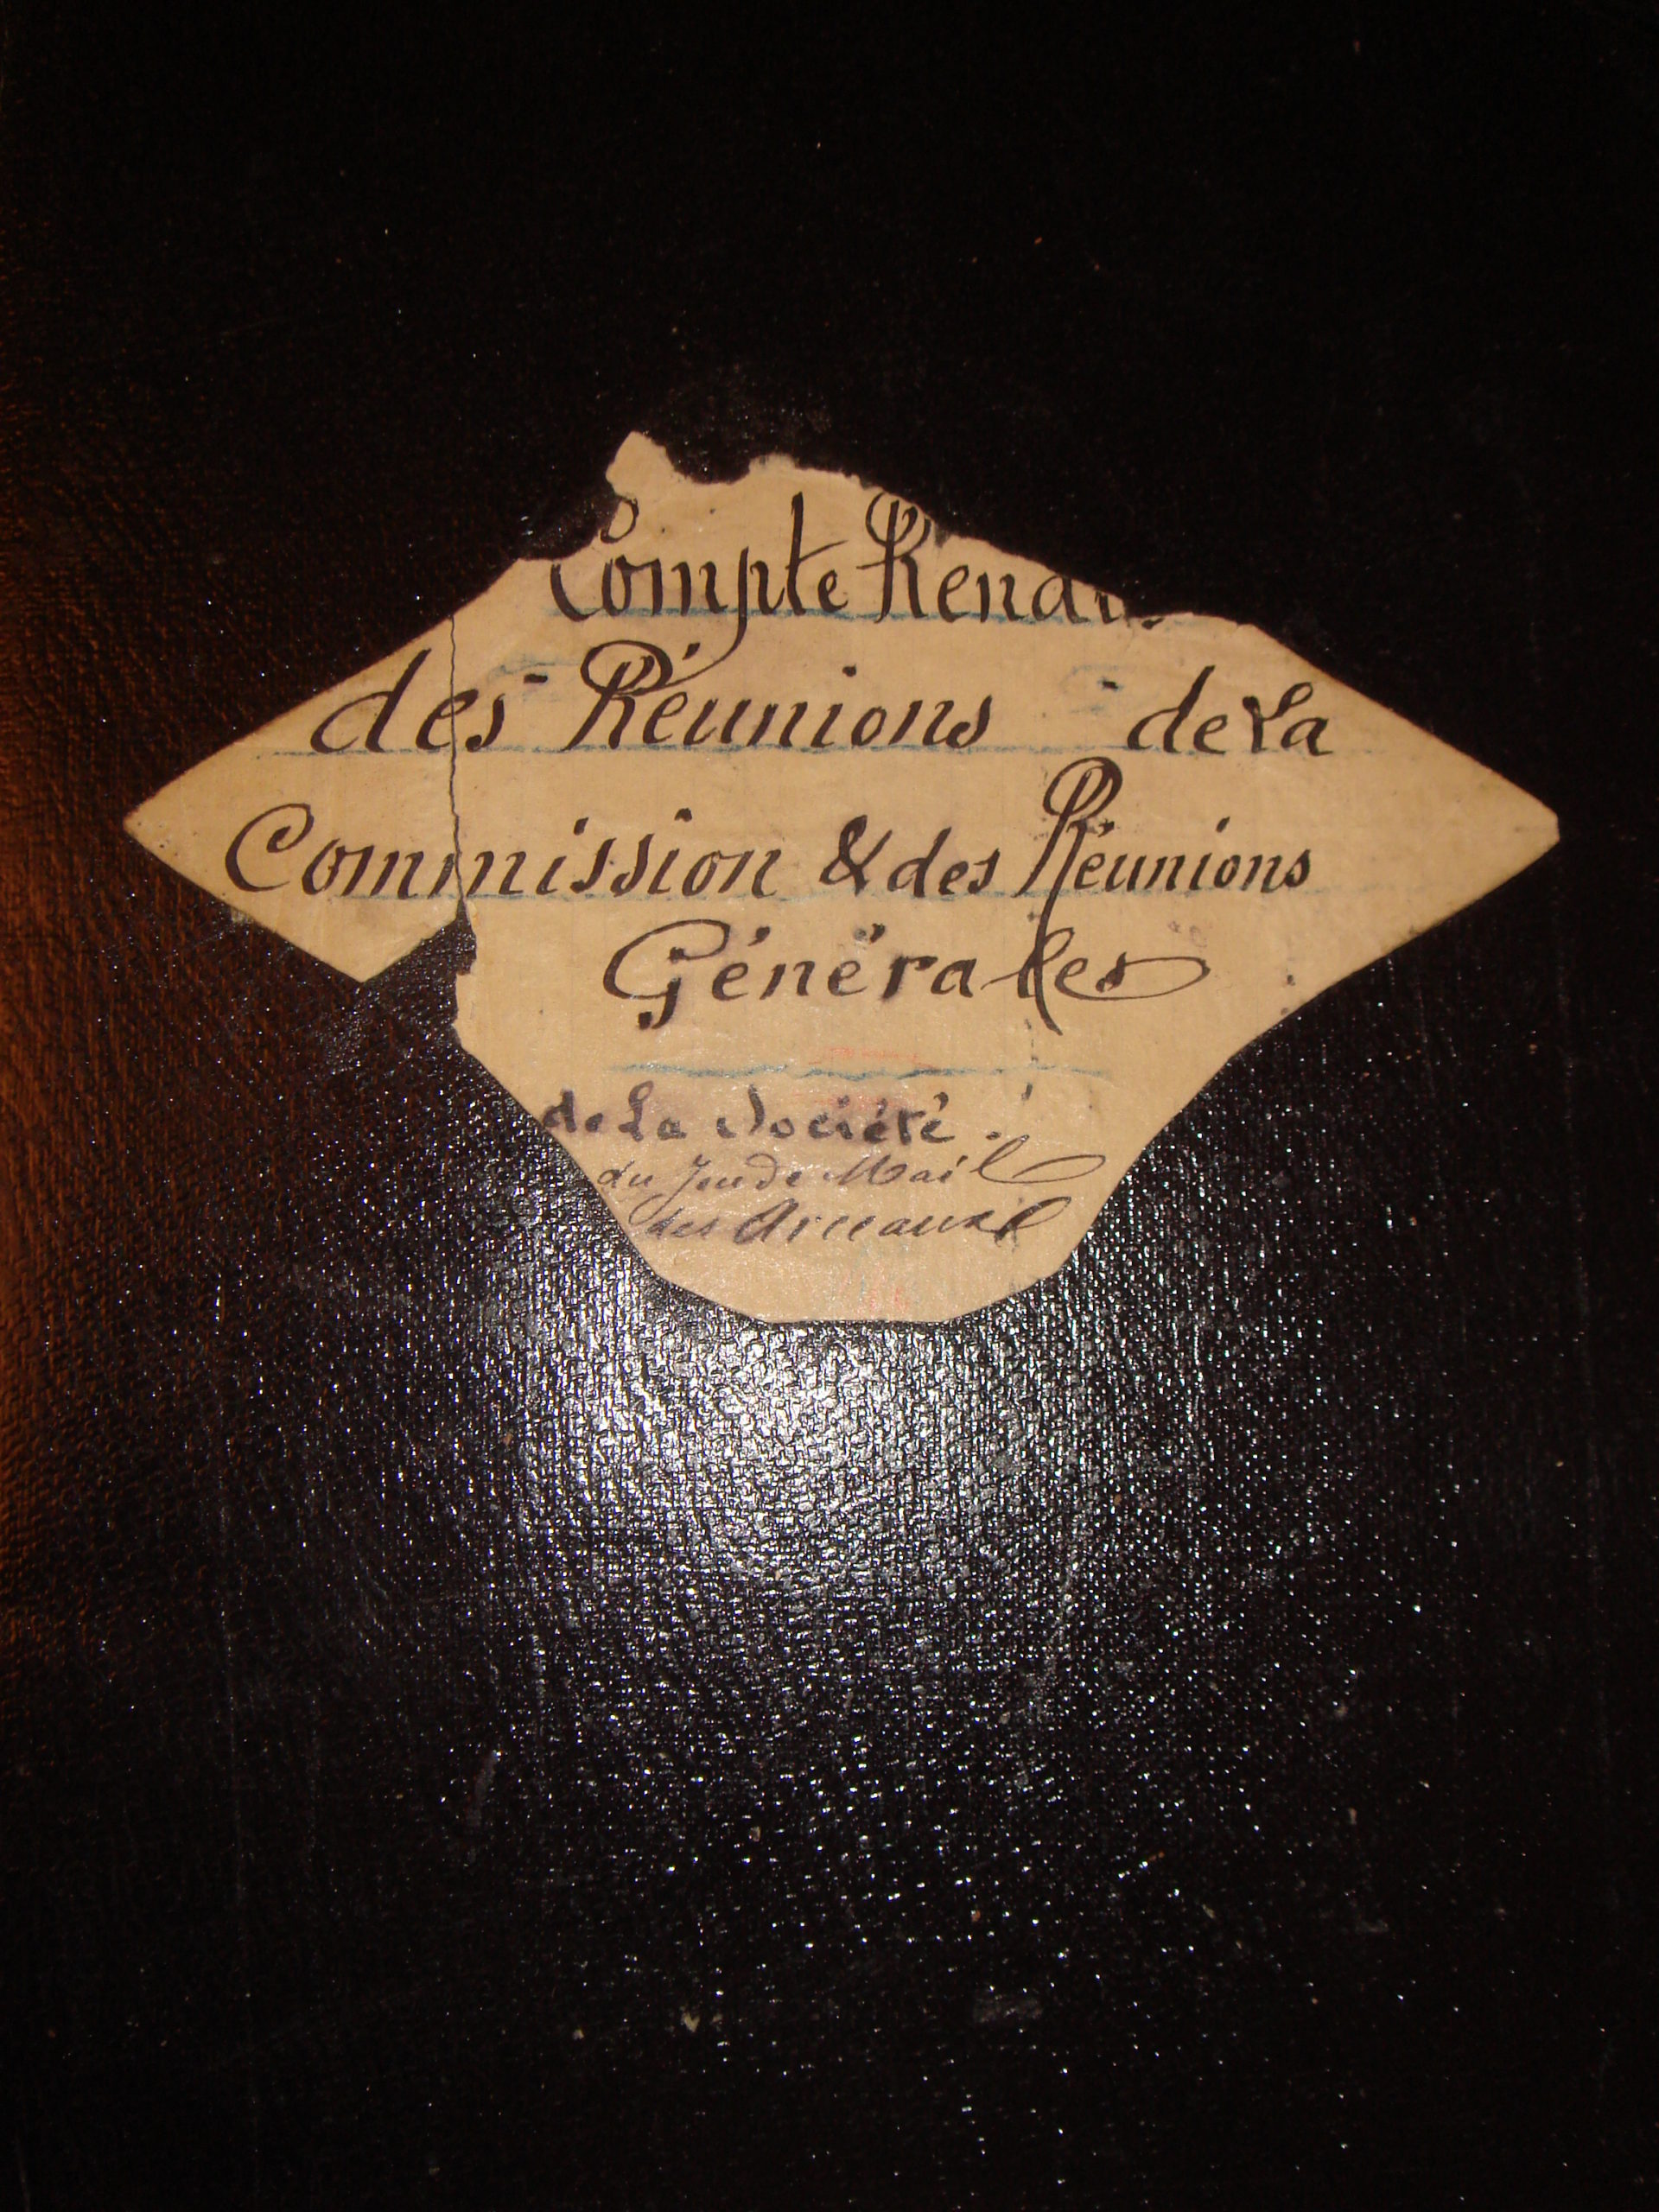 Compte Rendu
des Réunions de La
Commission & des Réunions
Générales
de La Société
du Jeu de Mail
des Arceaux